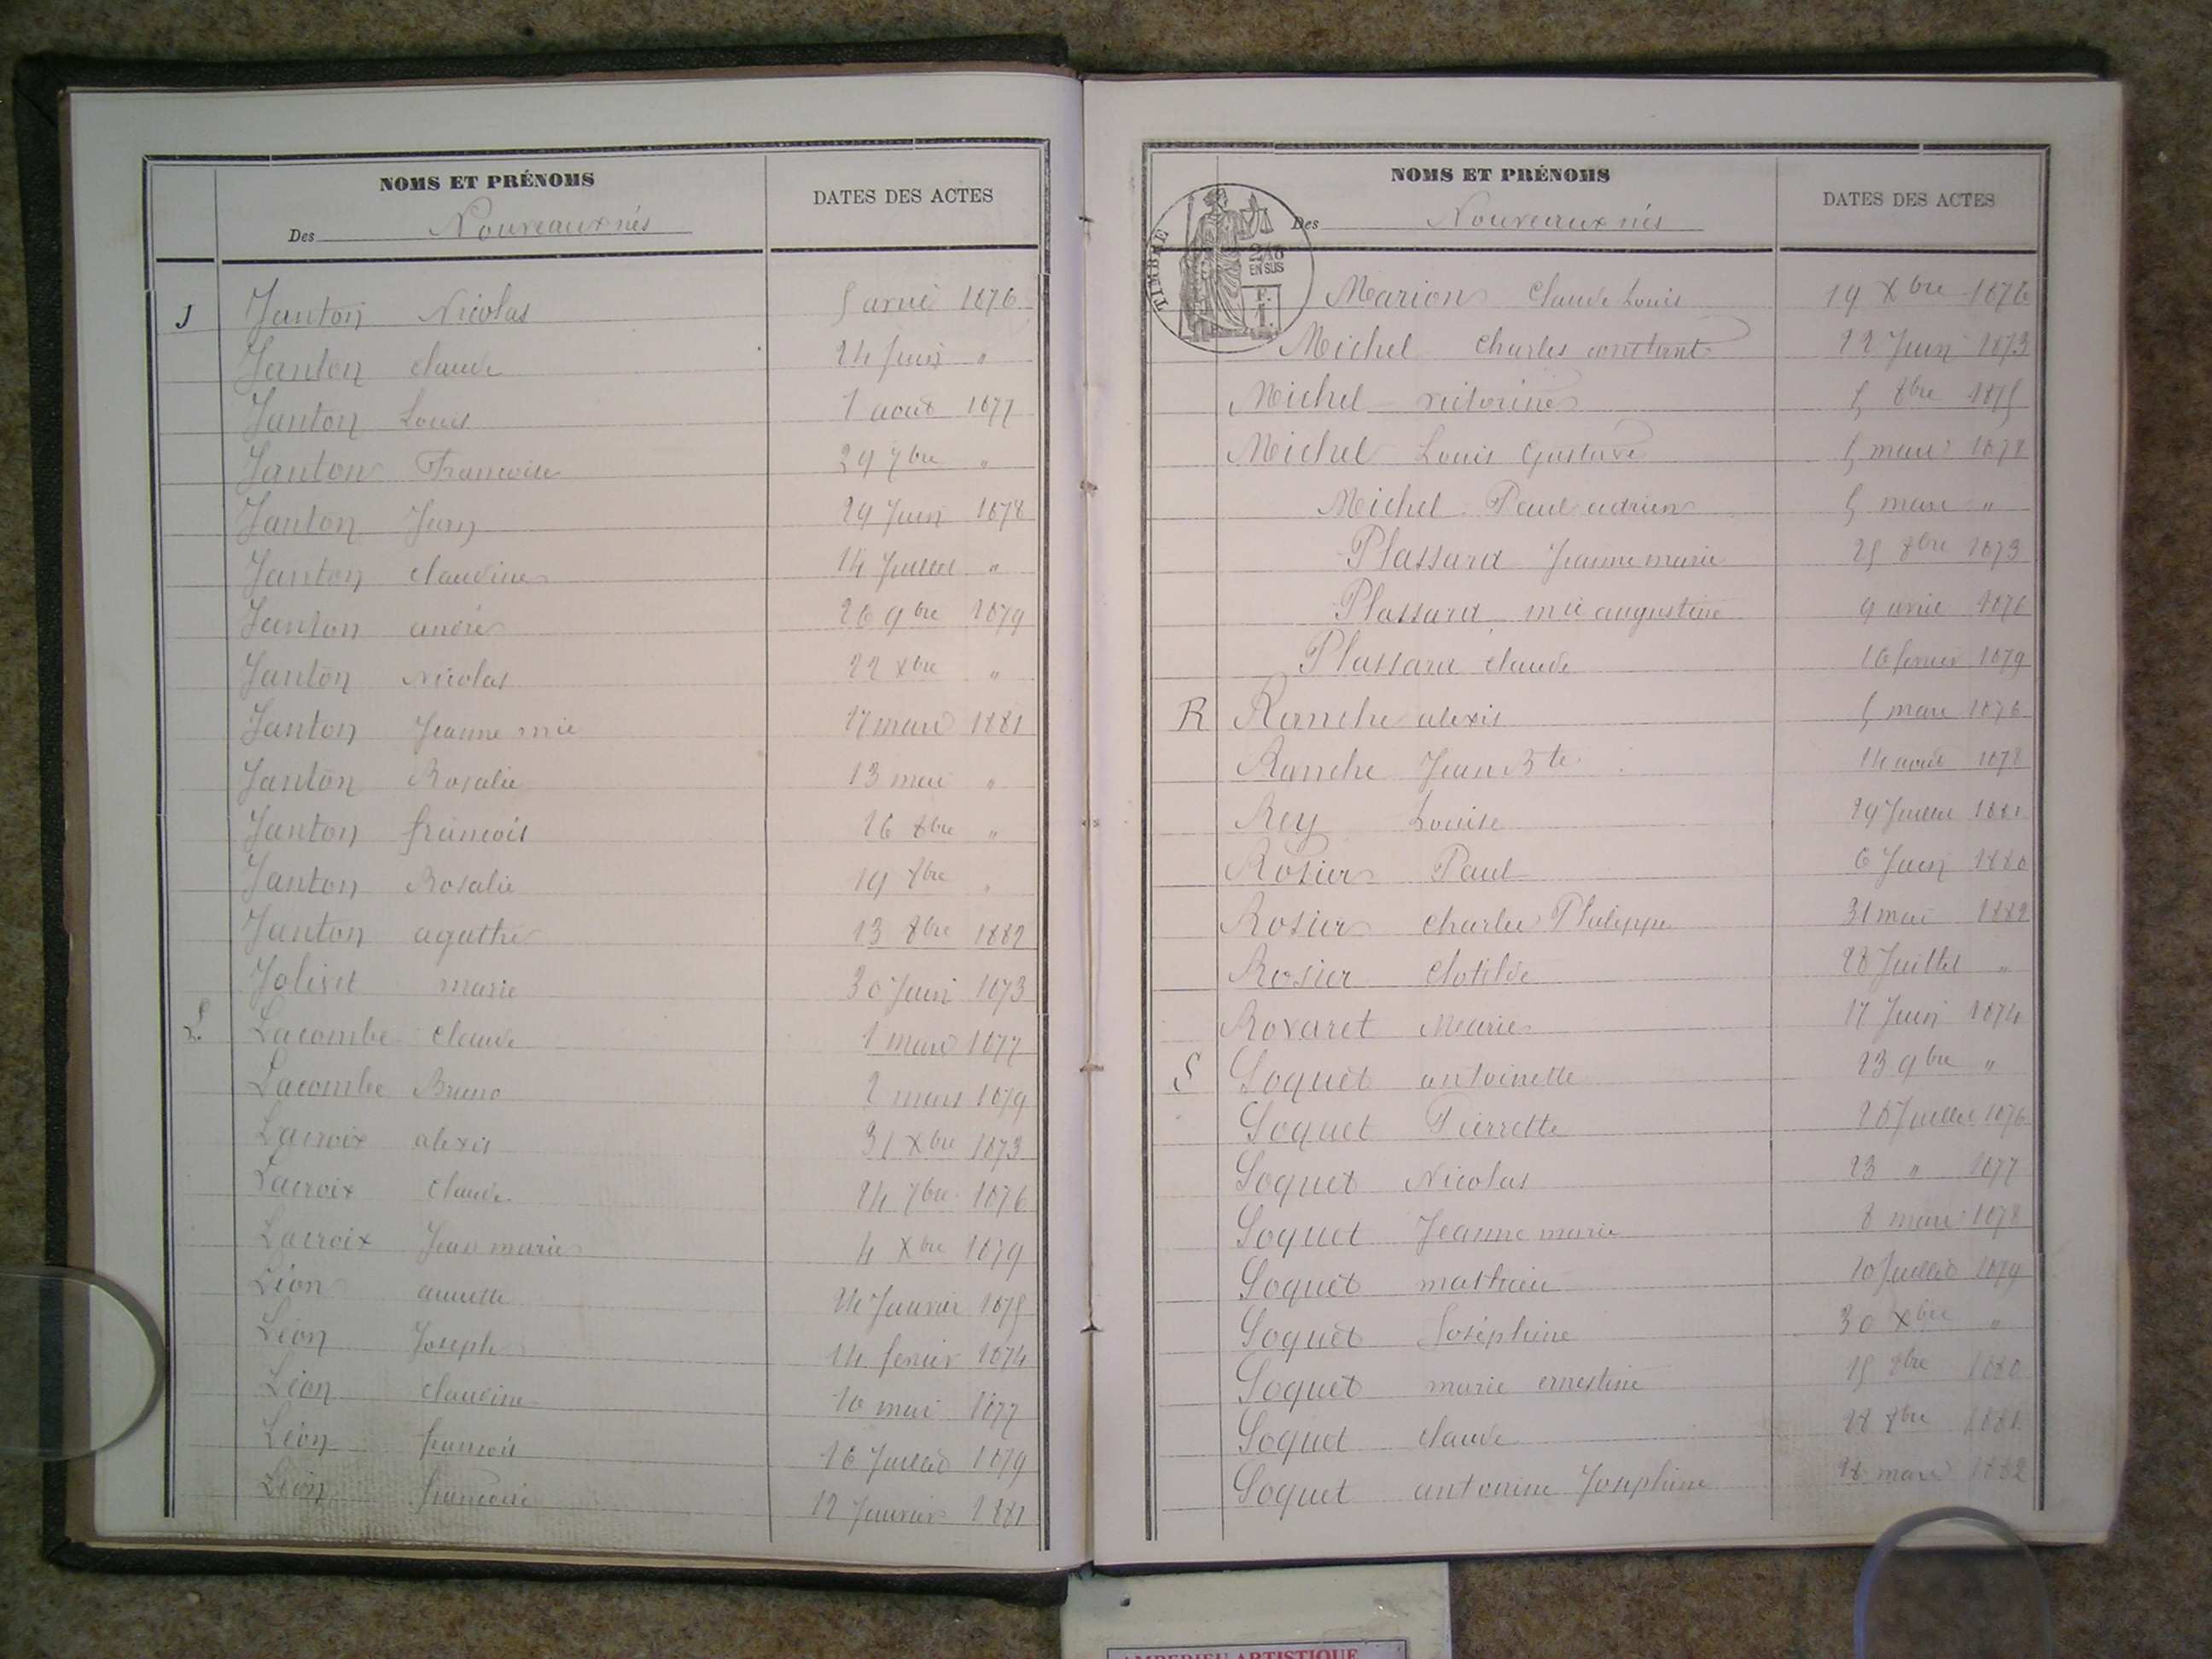 NOMS ET PRÉNOMS
Des Nouveaux nés
DATES DES ACTES
J Janton Nicolas 5 avril 1876
Janton claude 24 Juin "
Janton Louis 1 aout 1877
Janton Francoise 29 7bre "
Janton Jean 29 Juin 1878
Janton claudine 14 Juillet "
Janton andré 26 9bre 1879
Janton Nicolas 22 xbre "
Janton Jeanne mie 17 mars 1881
Janton Rosalie 13 mai "
Janton francois 16 8bre "
Janton Rosalie 19 8bre "
Janton agathe 13 8bre 1882
Jolivet marie 30 Juin 1873
L. Lacombe Claude 1 mars 1877
Lacombe Bruno 2 mars 1879
Lacroix alexis 31 Xbre 1873
Lacroix claude 24 7bre 1876
Lacroix Jean marie 4 Xbre 1879
Léon annette 24 Janvier 1875
Léon Joseph 14 fevrier 1874
Léon claudine 10 mai 1877
Léon francois 16 Juillet 1879
Léon francoise 12 Janvier 1881
NOMS ET PRÉNOMS
Des Nouveaux nés
DATES DES ACTES
TIMBRE
2/10
EN SUS
F.
1.
Marion Claude Louis 19 Xbre 1876
Michel Charles constant 22 Juin 1873
Michel victorine 5 8bre 1875
Michel Louis Gustave 5 mars 1878
Michel Paul adrien 5 mars "
Plassard Jeanne marie 25 8bre 1873
Plassard mie augustine 9 avril 1876
Plassard claude 16 fevrier 1879
R Ranche alexis 5 mars 1876
Ranche Jean Bte 14 aout 1878
Rey Louise 29 Juillet 1881
Rosier Paul 6 Juin 1880
Rosier Charles Philippe 31 mai 1882
Rosier Clotilde 28 Juillet "
Rovaret Marie 17 Juin 1874
S Soquet antoinette 23 9bre "
Soquet Pierrette 26 Juillet 1876
Soquet Nicolas 23 " 1877
Soquet Jeanne marie 8 mars 1878
Soquet mathieu 10 Juillet 1879
Soquet Joséphine 30 Xbre "
Soquet marie ernestine 15 8bre 1880
Soquet claude 28 8bre 1881
Soquet antonine Josephine 18 mars 1882
AMBERIEU ARTISTIQUE